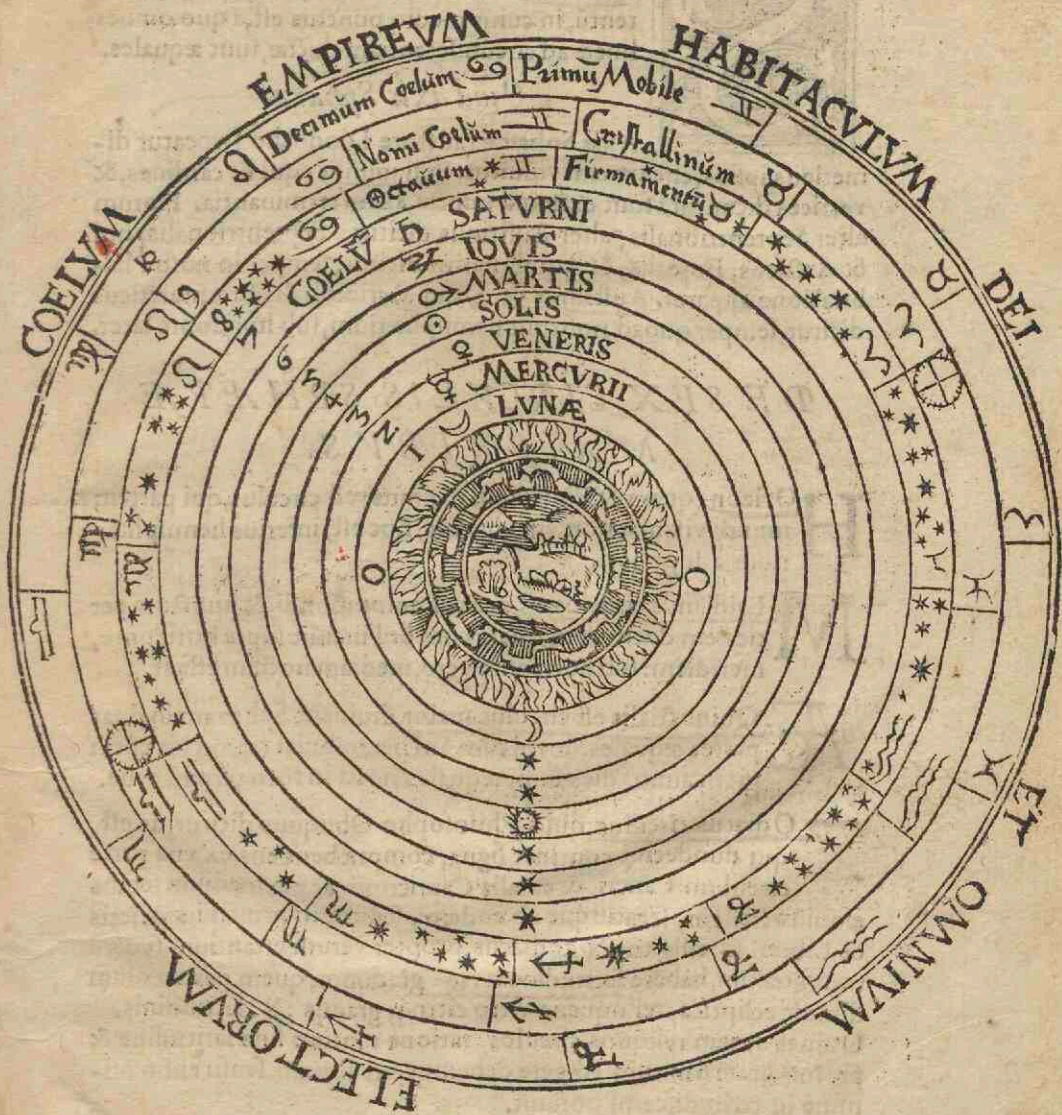 COELVM EMPIREVM HABITACVLVM DEI ET OMNIVM ELECTORVM
Decimum Coelum ♋ Primū Mobile ♊
Nonū Coelum ♊ Cristallinūm ♉
Octauum ♊ Firmamentū ♉
COELV̄ ♄ SATVRNI
♃ IOVIS
♂ MARTIS
☉ SOLIS
♀ VENERIS
☿ MERCVRII
☽ LVNÆ
8
7
6
5
4
3
2
1